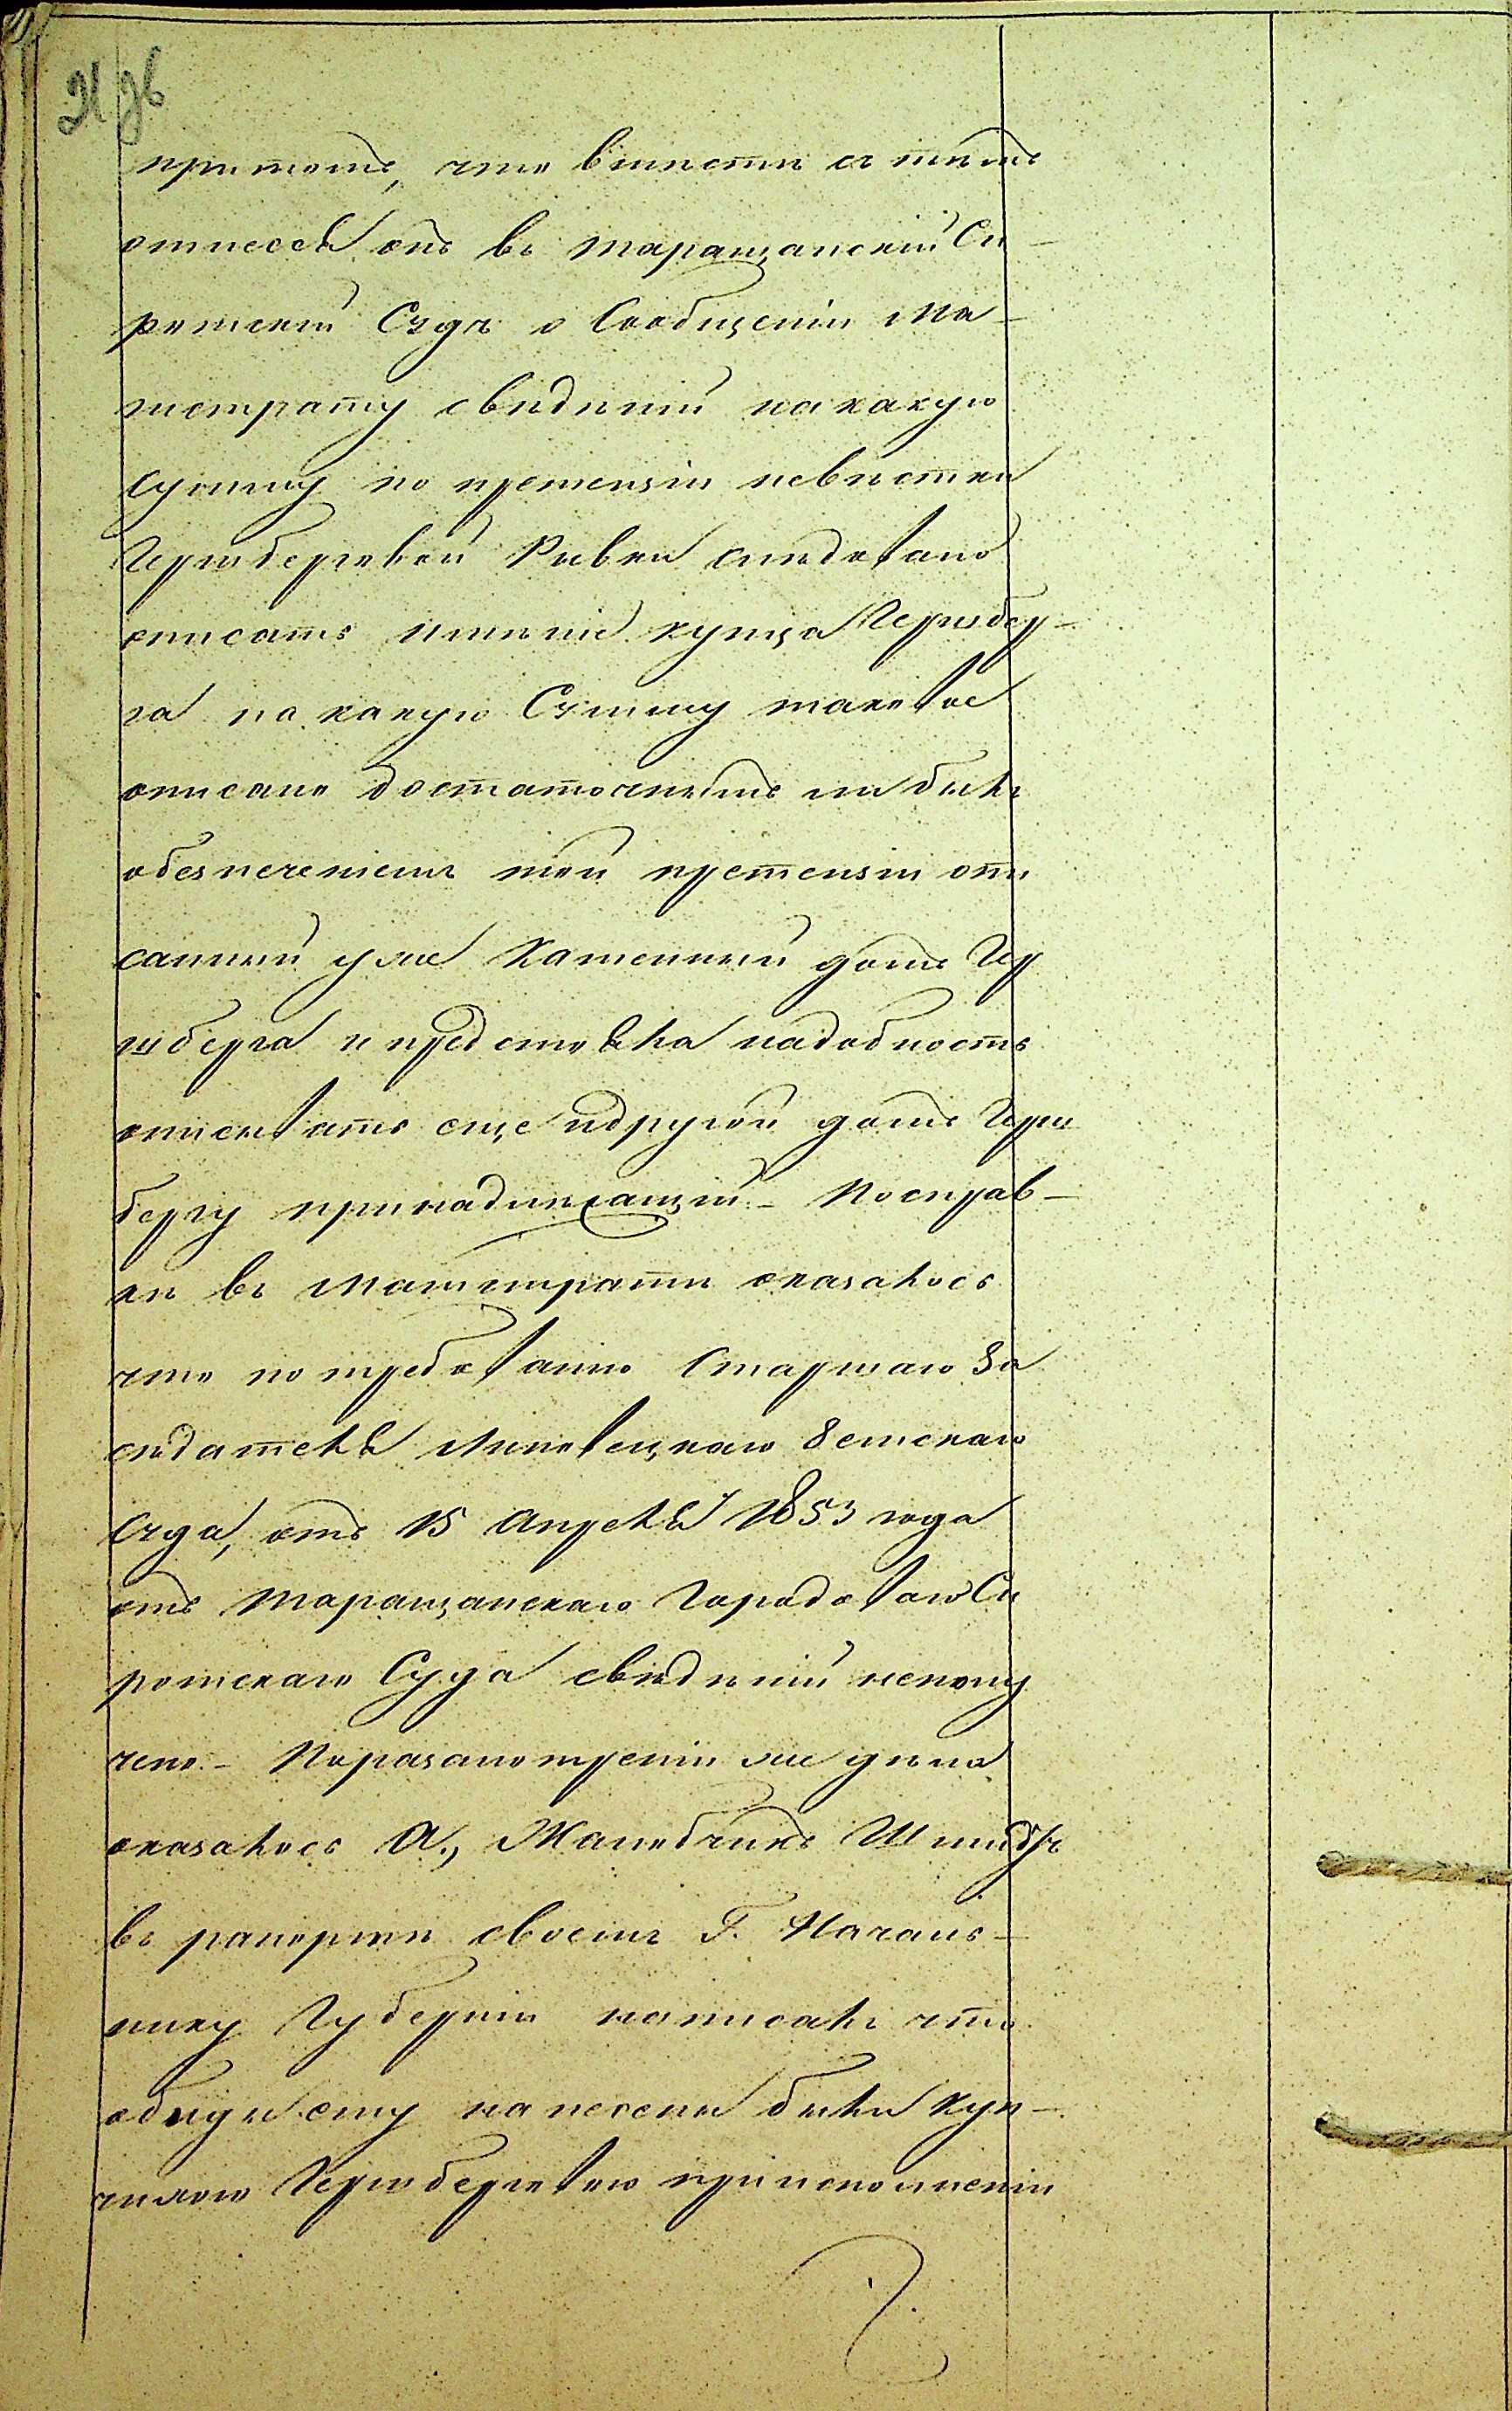 притомъ, что вмѣстѣ съ тѣмъ
отнесся онъ въ Таращанскій Си-
ротскій Судъ о сообщеніи Ма-
гистрату свѣдѣній на какую
сумму по претензіи невѣстки
Гершберговой Ривки слѣдовало
описать имѣніе купца Гершбер-
га на какую Сумму таковое
описано достаточнымъ ли былъ
обезпеченіемъ той претензіи опи
санный уже Каменный домъ Гер
шберга и предстояла надобность
описывать еще и другой домъ Герш
бергу принадлежащій. - По справ-
кѣ въ Магистратѣ оказалось
что по требованію Старшаго За
сѣдателя Липовецкаго Земскаго
Суда, отъ 15 Апрѣля 1853 года
отъ Таращанскаго Городоваго Си
ротскаго Суда свѣдѣній неполу
чено. - По разсмотреніи же дѣла
оказалось А., Жалобчикъ Шмидтъ
въ рапортѣ своемъ Г. Началь-
нику Губерніи написалъ что
обиды ему нанесены были куп-
чихою Гершберговою при исполненіи